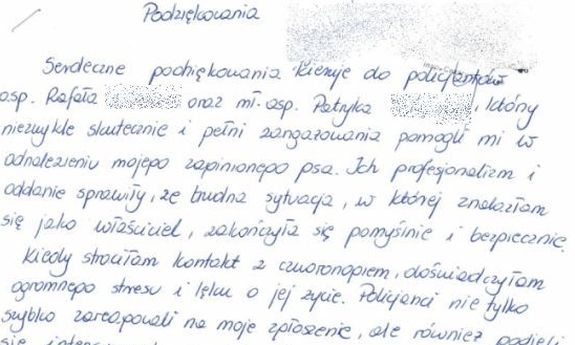 Podziękowania
Serdeczne podziękowania kieruje do policjantów
asp. Rafała oraz mł. asp. Patryka , którzy
niezwykle skutecznie i pełni zangażowania pomogli mi w
odnalezieniu mojego zaginionego psa. Ich profesjonalizm i
oddanie sprawiły, że trudna sytuacja, w której znalazłam
się jako właściciel, zakończyła się pomyślnie i bezpiecznie.
Kiedy straciłam kontakt z czworonogiem, doświadczyłam
ogromnego stresu i lęku o jej życie. Policjanci nie tylko
szybko zareagowali na moje zgłoszenie, ale również podjęli
się